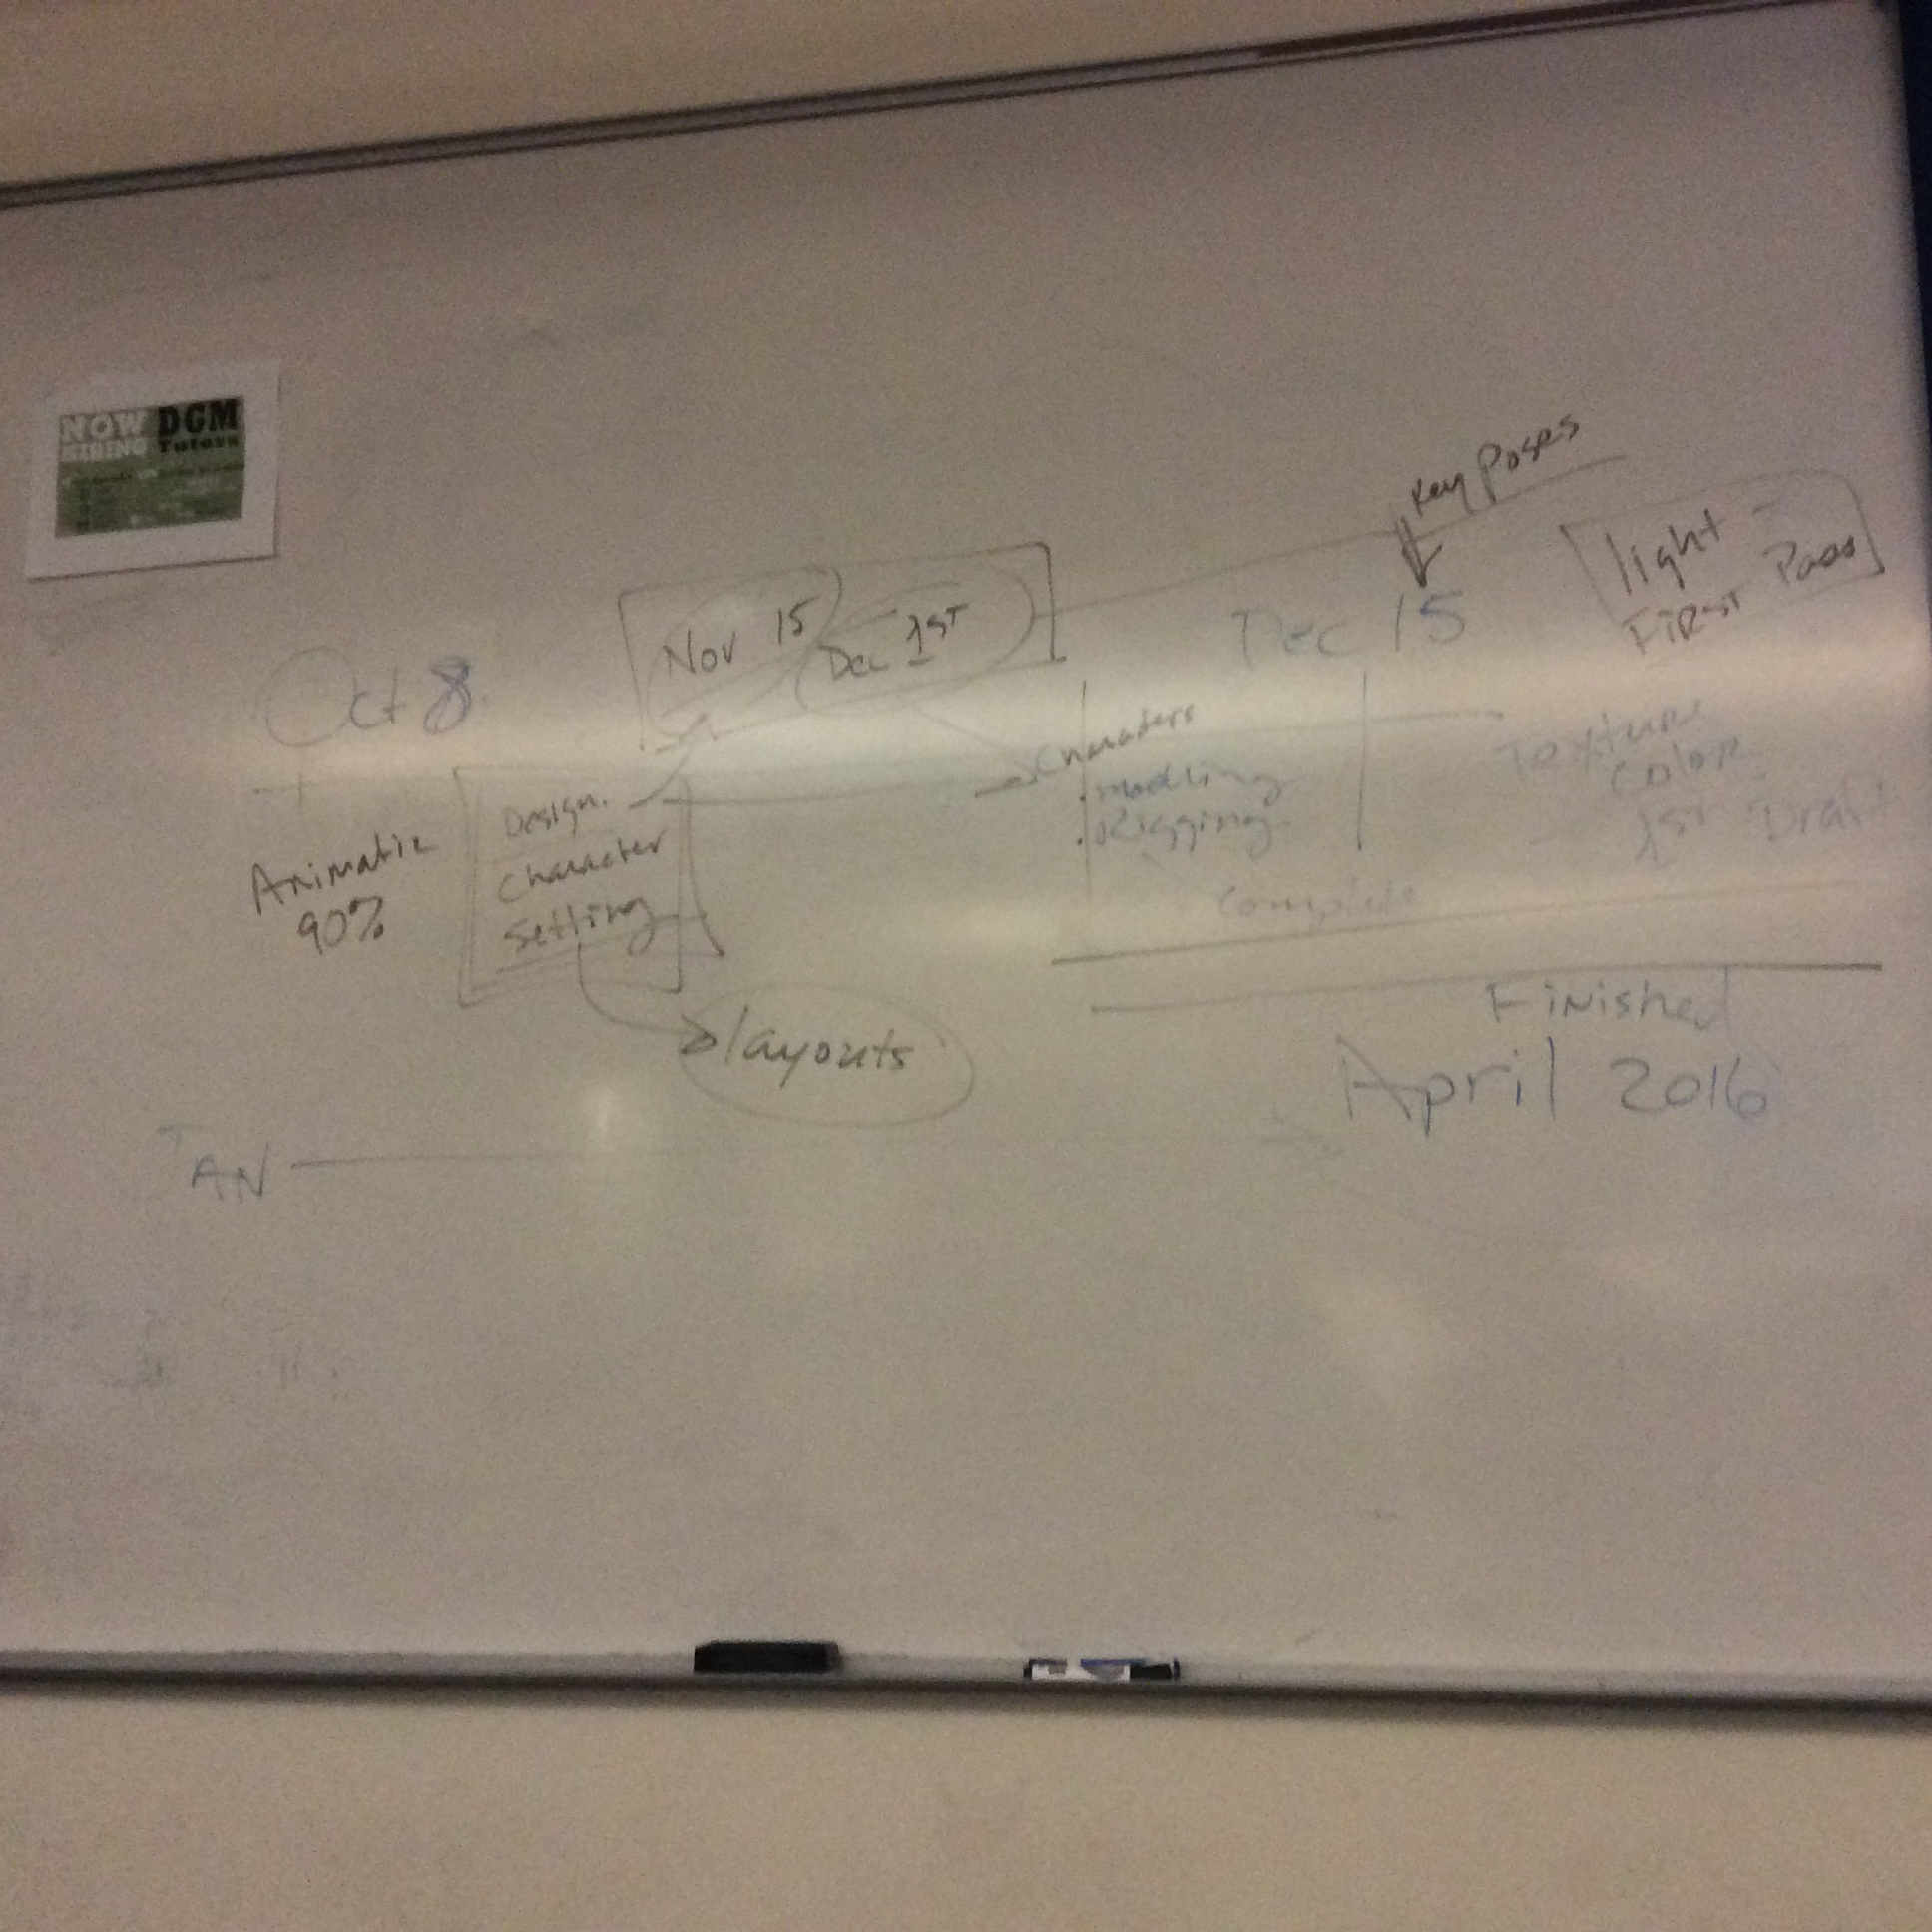 NOW HIRING
DGM
Tutors
Key Poses
light -
First Pass
Oct 8
Nov 15
Dec 1st
Dec 15
Animatic
90%
Design.
Character
Setting
layouts
Characters
. Modling
. Rigging
Complete
Texture
Color
1st Draft
Finished
April 2016
JAN